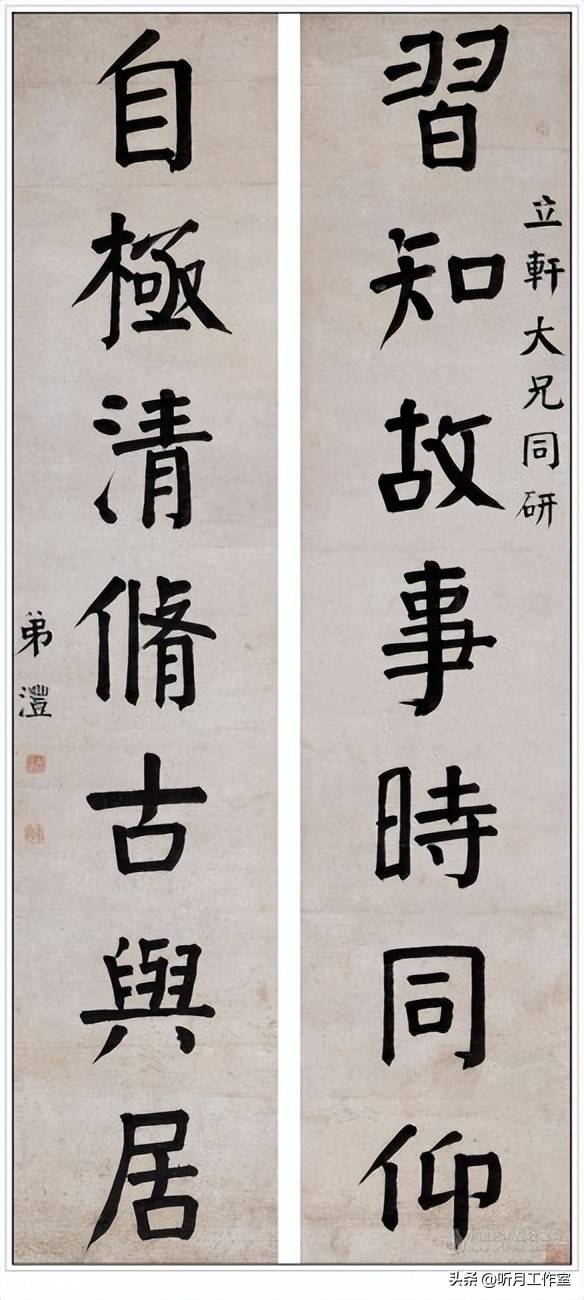 立軒大兄同研
習知故事時同仰
自極清脩古與居
弟澧
头条 @听月工作室